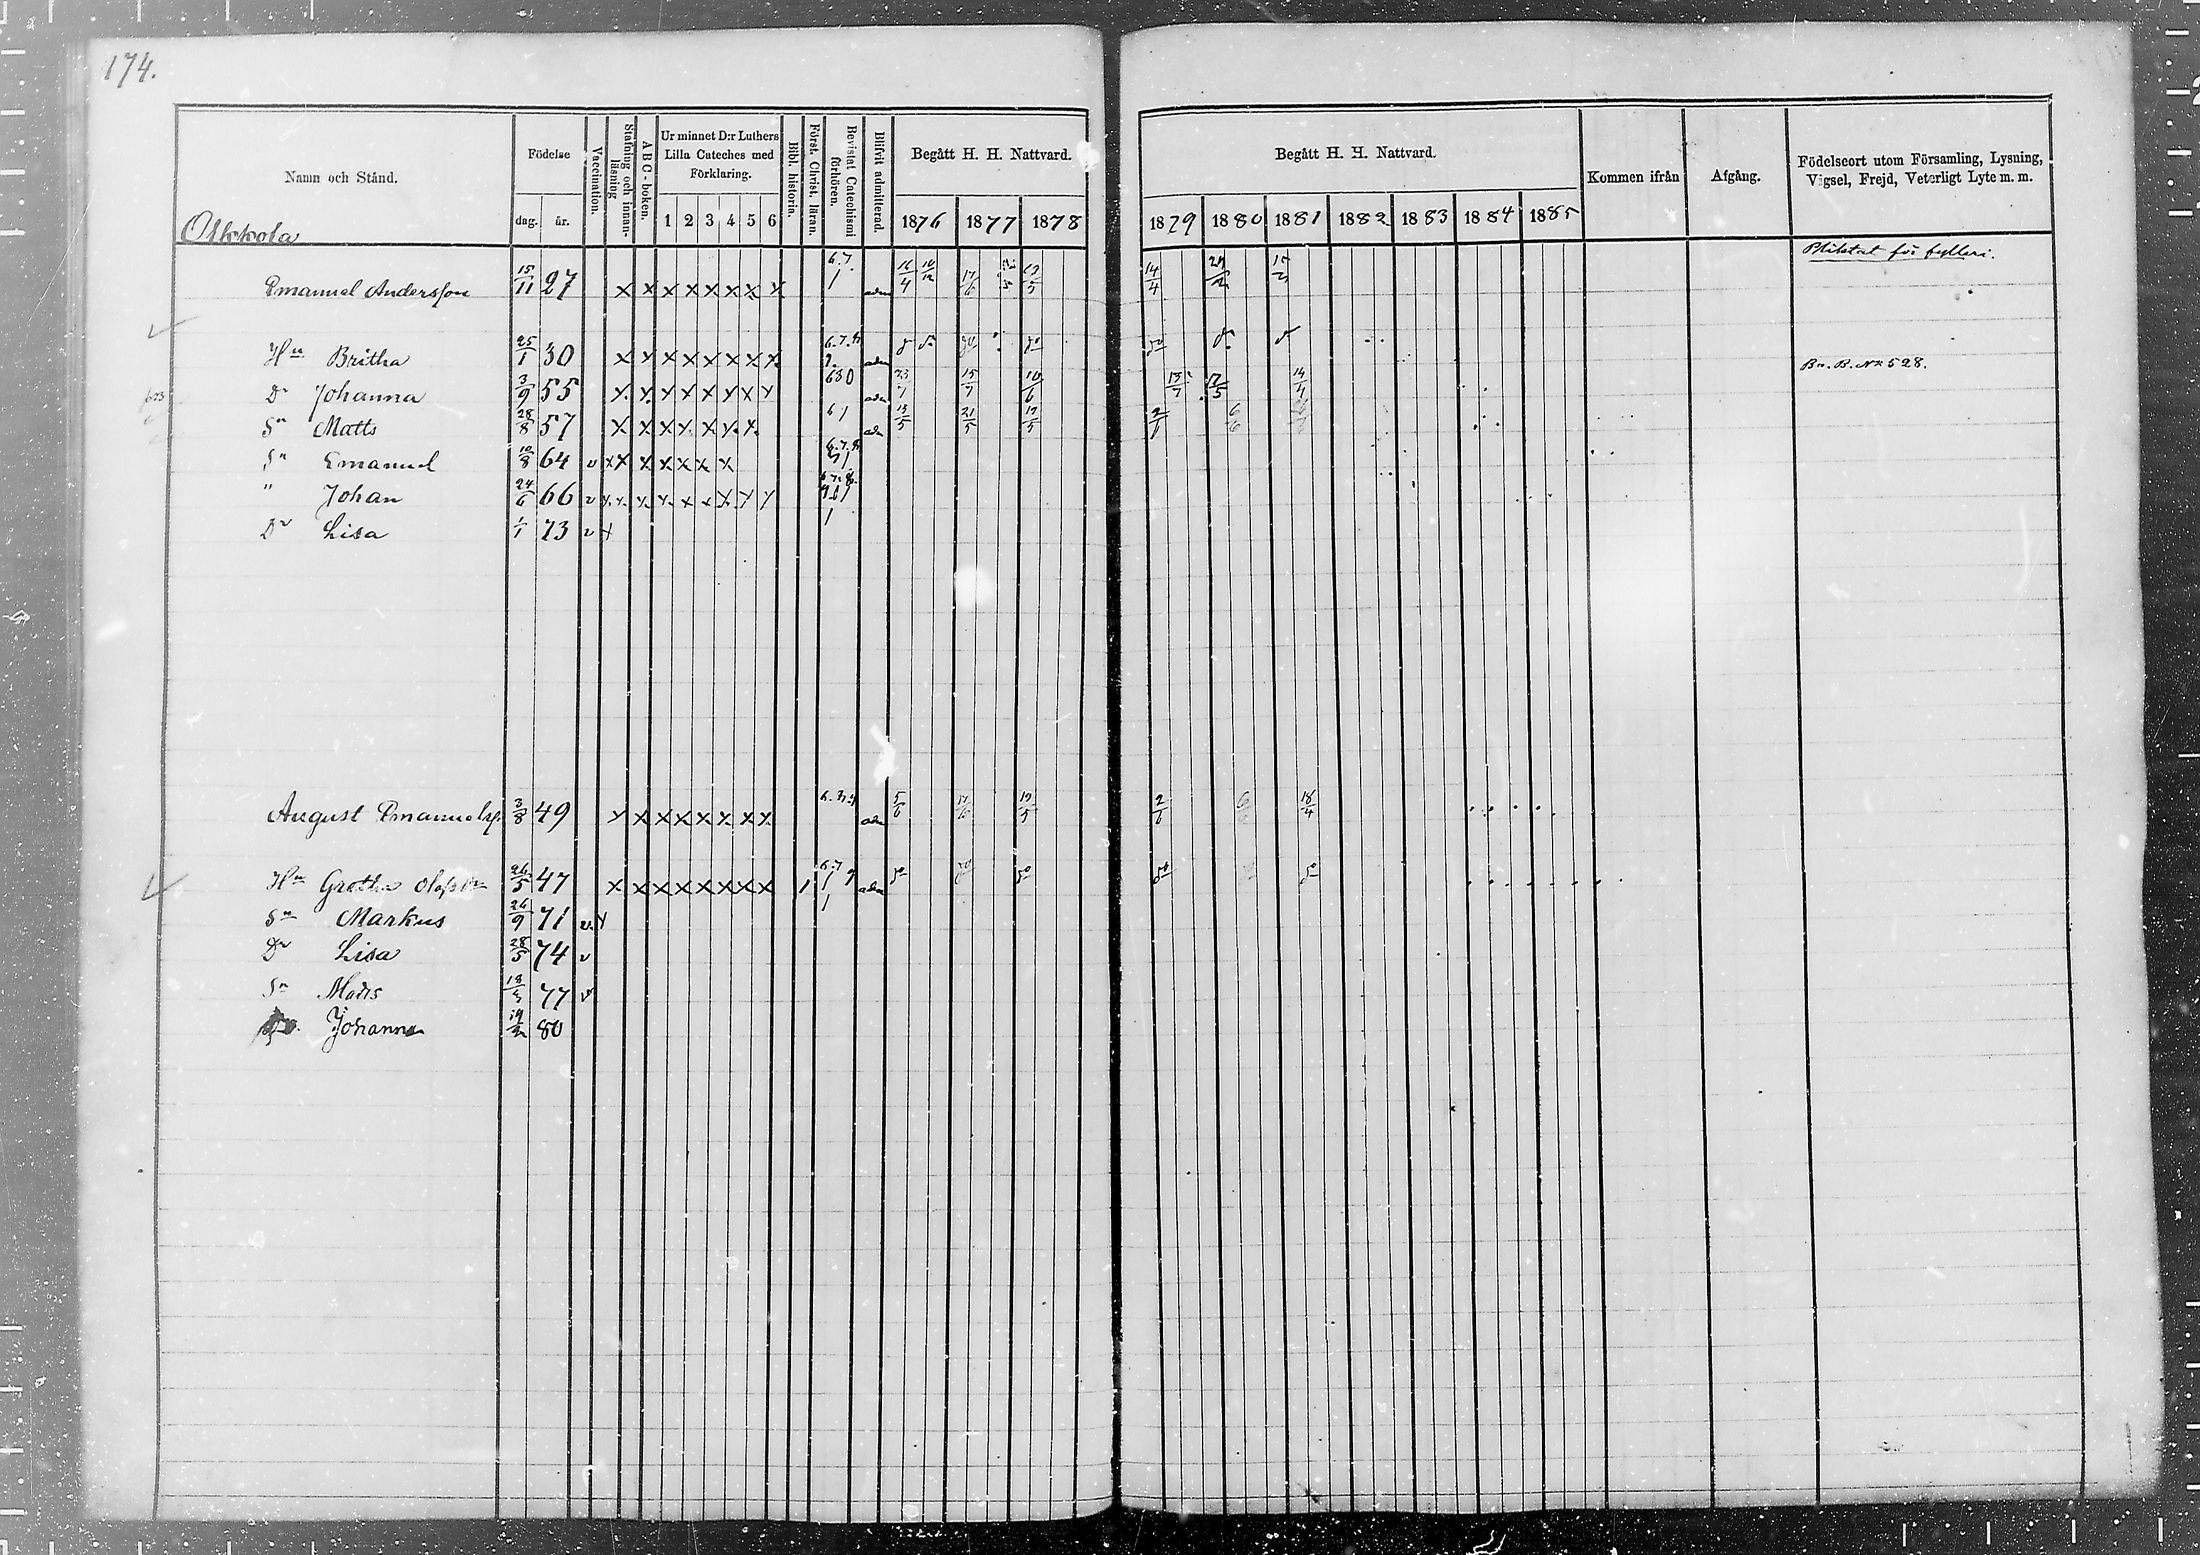 174.
Namn och Stånd.
Födelse
dag. år.
Vaccination.
Stafning och innan-läsning
A B C-boken.
Ur minnet D:r Luthers Lilla Cateches med Förklaring.
1 2 3 4 5 6
Bibl. historia.
Först. Christ. lära.
Bevistat Catechismi förhören.
Blifvit admitterad.
Begått H. H. Nattvard.
1876 1877 1878
Begått H. H. Nattvard.
1879 1880 1881 1882 1883 1884 1885
Kommen ifrån
Afgång.
Födelseort utom Församling, Lysning, Vigsel, Frejd, Veterligt Lyte m. m.
Olkkola
Pliktat för fylleri.
Emanuel Andersson 15/11 27 x x x x x x x x 6.7. 1 adm 17/6 19/5 14/4
Hu Britha 25/1 30 x x x x x x x x adm
Dr Johanna 3/9 55 x x x x x x x x 680 adm 15/7 16/6 13/7 17/5 14/4 Bn. B. No 528.
Sn Matts 28/8 57 x x x x x x x 61 adm 13/5 21/5 19/5 2/6 6/6
Sn Emanuel 10/8 64 v x x x x x x x
" Johan 24/6 66 v x x x x x x x x x
Dr Lisa 1/1 73 v x 1
August Emanuelss. 3/8 49 x x x x x x x x adm 5/6 17/6 19/5 2/6 6/6 18/4
Hu Gretha Olofsdr 26/5 47 x x x x x x x x 1 6.7 1 9 adm do do do do do
Sn Markus 26/9 71 v. x 1
Dr Lisa 28/5 74 v
Sn Matts 77 v
Johanna 19/2 80